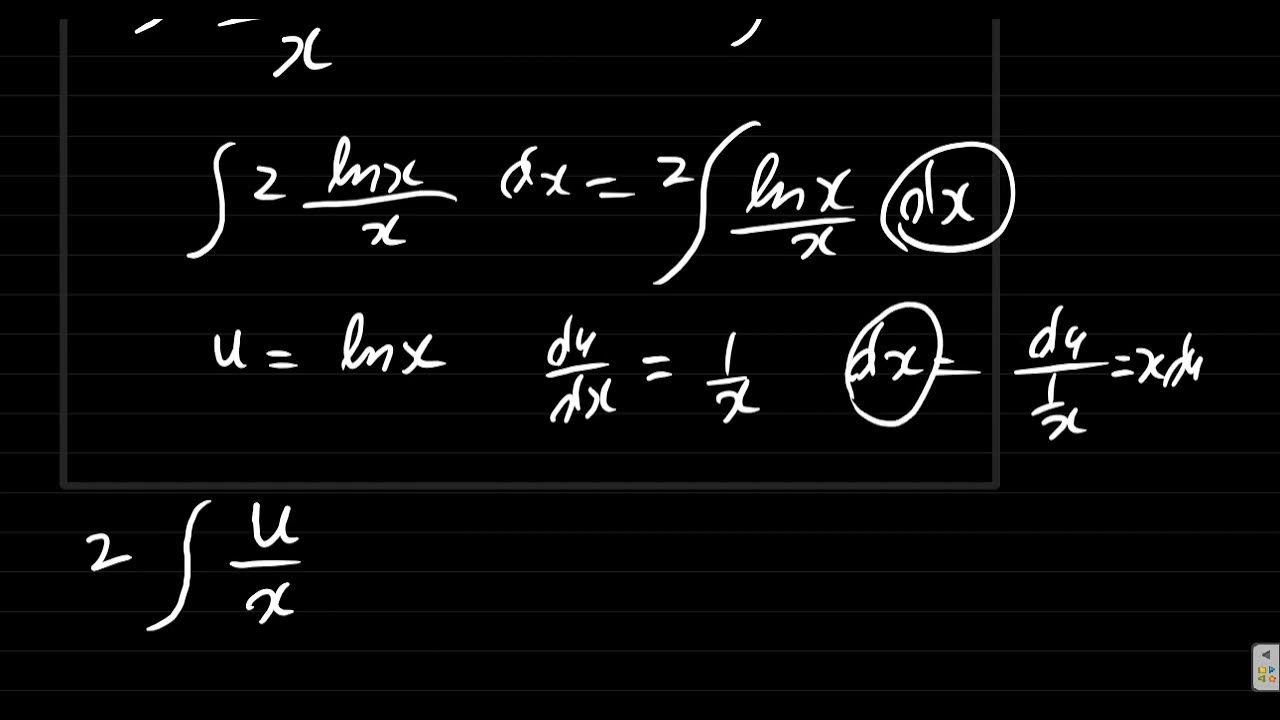 x
∫ 2 ln x / x dx = 2 ∫ ln x / x dx
u = ln x du/dx = 1/x dx = du / (1/x) = x du
2 ∫ u / x